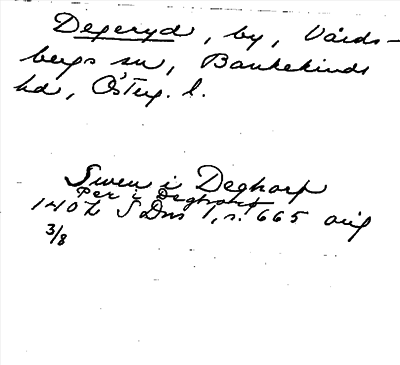 Degeryd, by, Vårds-
bergs sn, Bankekinds
hd, Österg. l.
Swen i Deghorp
Per i Deghorp
1402 SDns 1, s. 665 orig
3/8